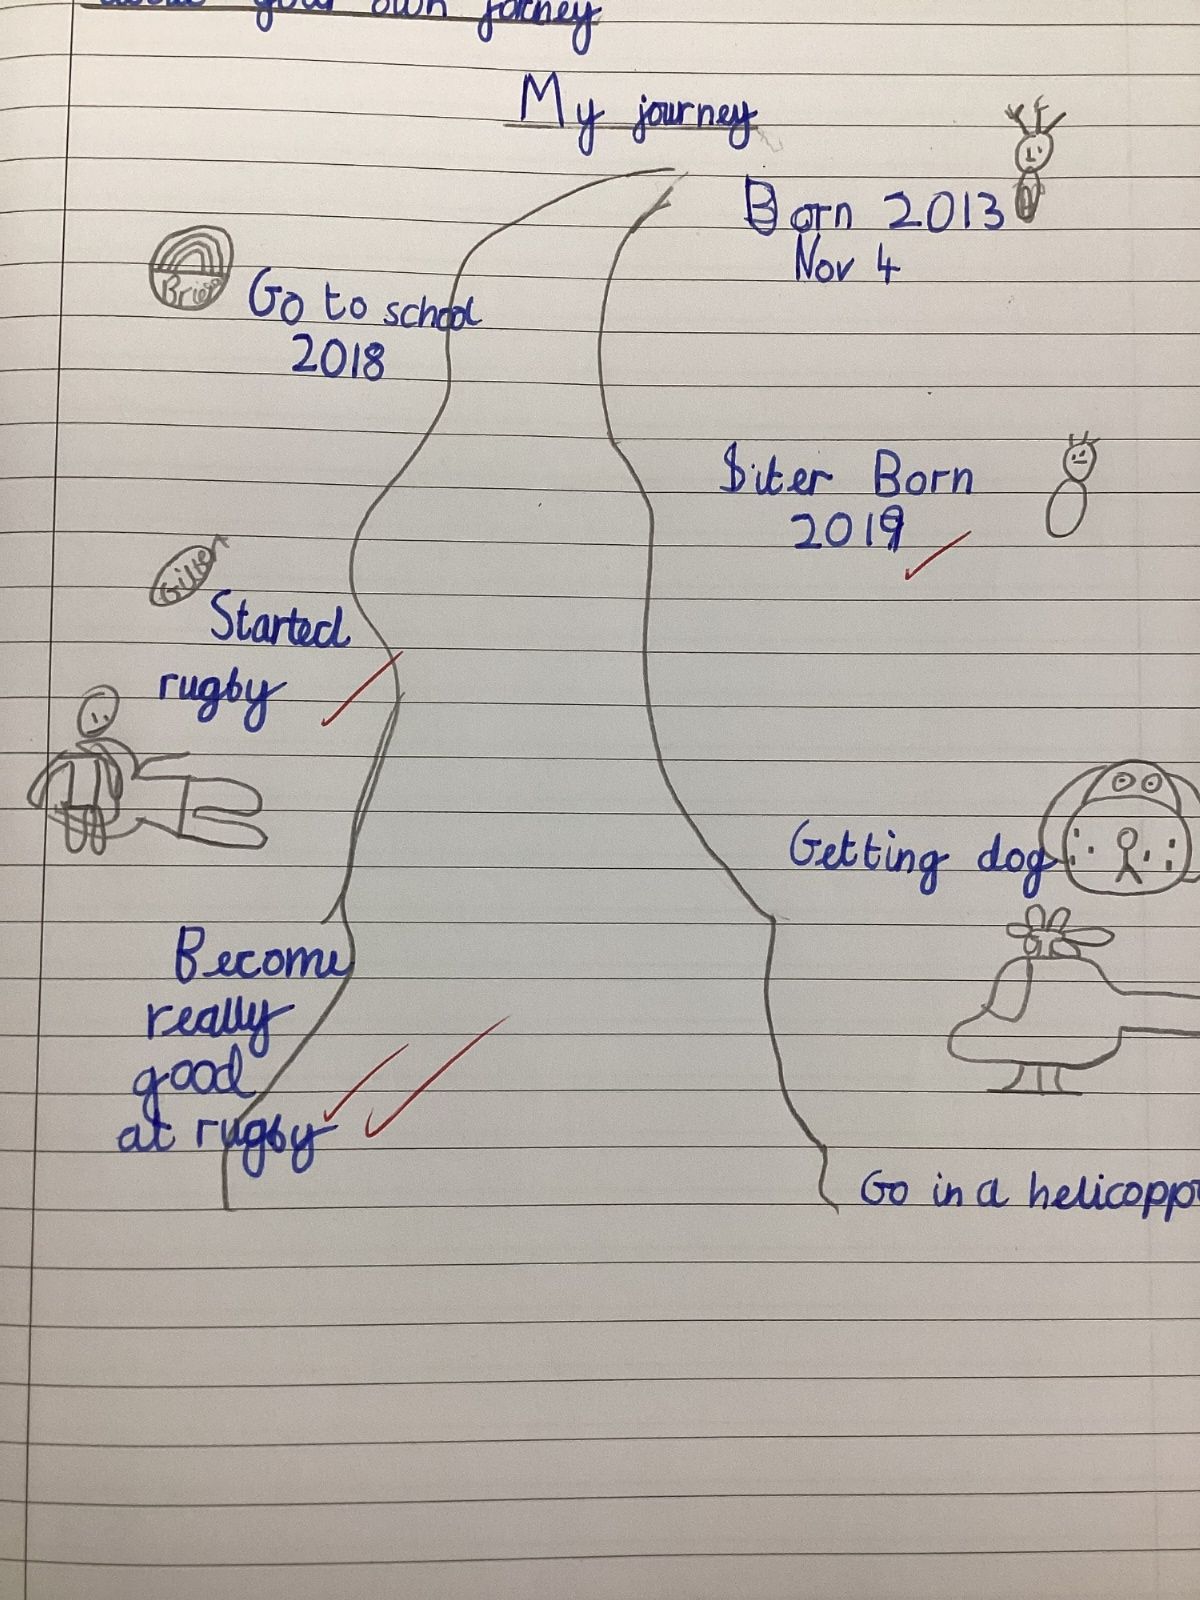 about your own jorney
My journey
Born 2013
Nov 4
Go to school
2018
Siter Born
2019
Started
rugby
Getting dog
Become
really
good
at rugby
Go in a helicopp